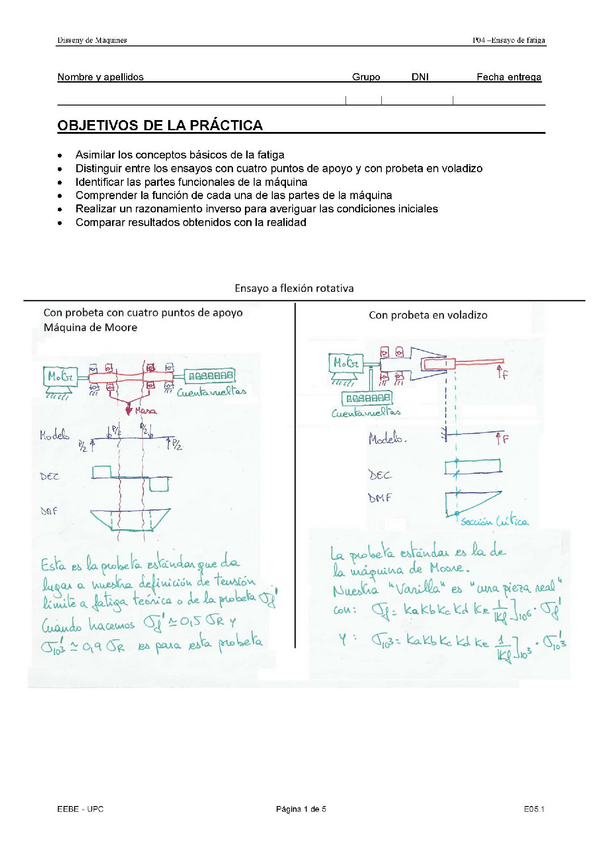 Disseny de Màquines P04 –Ensayo de fatiga
Nombre y apellidos Grupo DNI Fecha entrega
OBJETIVOS DE LA PRÁCTICA
• Asimilar los conceptos básicos de la fatiga
• Distinguir entre los ensayos con cuatro puntos de apoyo y con probeta en voladizo
• Identificar las partes funcionales de la máquina
• Comprender la función de cada una de las partes de la máquina
• Realizar un razonamiento inverso para averiguar las condiciones iniciales
• Comparar resultados obtenidos con la realidad
Ensayo a flexión rotativa
Con probeta con cuatro puntos de apoyo
Máquina de Moore
Motor
Cuentavueltas
Masa
Modelo P/2 P/2 P/2 P/2
DEC
DMF
Esta es la probeta estándar que da
lugar a nuestra definición de tensión
límite a fatiga teórica o de la probeta σf'
Cuando hacemos σf' ≃ 0,5 σR y
σ10³' ≃ 0,9 σR es para esta probeta
Con probeta en voladizo
Motor
F
Cuentavueltas
Modelo. F
DEC
DMF
Sección Crítica
La probeta estándar es la de
la máquina de Moore.
Nuestra "Varilla" es "una pieza real"
con: σf = Ka Kb Kc Kd Ke 1/Kf]10⁶ · σf'
y: σ10³ = Ka Kb Kc Kd Ke 1/Kf]10³ · σ10³'
EEBE - UPC Página 1 de 5 E05.1